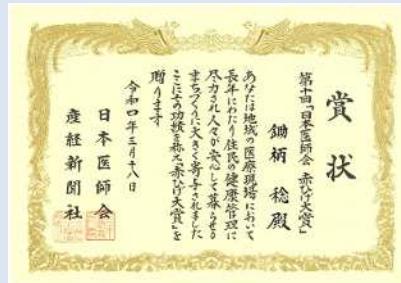 賞状
第十回「日本医師会 赤ひげ大賞」
鋤柄 稔 殿
あなたは地域の医療現場において
長年にわたり住民の健康管理に
尽力され人々が安心して暮らせる
まちづくりに大きく寄与されました
ここにその功績を称え「赤ひげ大賞」を
贈ります
令和四年三月十八日
日本医師会
産経新聞社